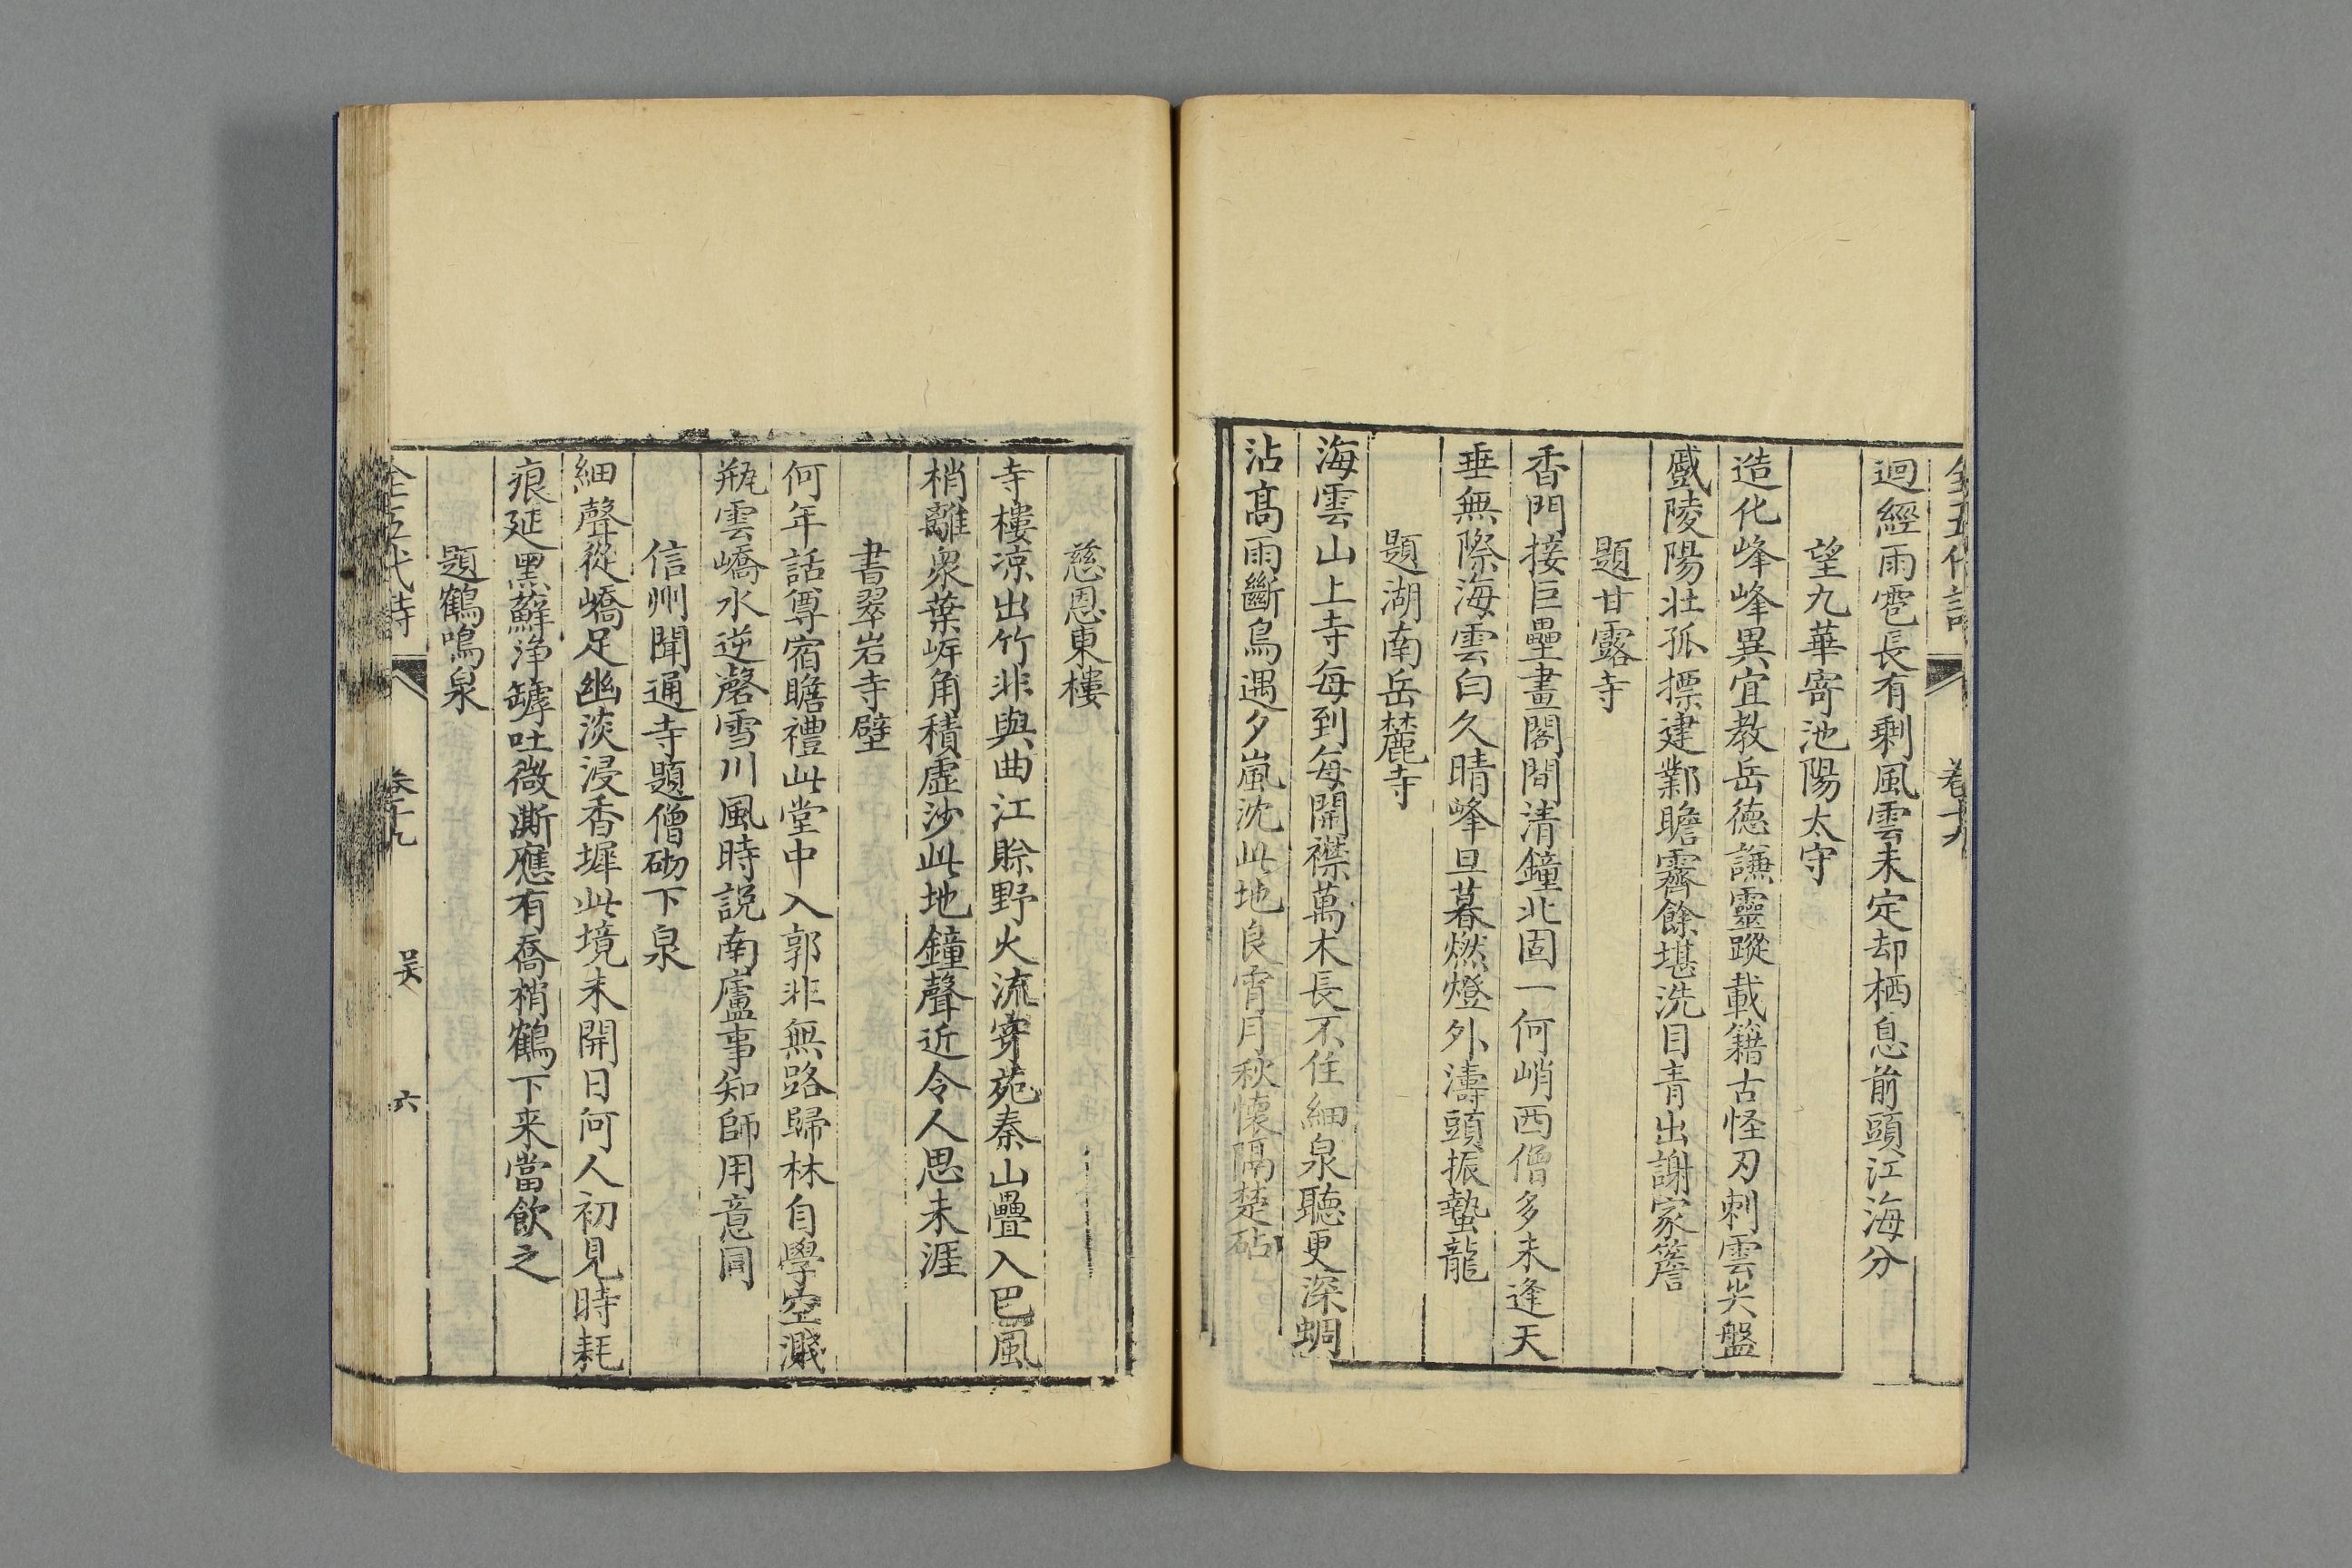 全五代詩
卷十九
迴經雨雹長有剩風雲未定却栖息前頭江海分
望九華寄池陽太守
造化峰峰異宜教岳德謙靈蹤載籍古怪刃刺雲尖盤
蹙陵陽壯孤摽建鄴瞻霽餘堪洗目青出謝家簷
題甘露寺
香門接巨壘畫閣間清鐘北固一何峭西僧多未逢天
垂無際海雲白久晴峰旦暮燃燈外濤頭振蟄龍
題湖南岳麓寺
海雲山上寺每到每開襟萬木長不住細泉聽更深蜩
沾高雨斷鳥遇夕嵐沈此地良宵月秋懷隔楚砧
慈恩東樓
寺樓凉出竹非與曲江賒野火流穿苑秦山疊入巴風
梢離衆葉岸角積虛沙此地鐘聲近令人思未涯
書翠岩寺壁
何年話尊宿瞻禮此堂中入郭非無路歸林自學空濺
瓶雲嶠水逆磬雪川風時說南廬事知師用意同
信州聞通寺題僧砌下泉
細聲從嶠足幽淡浸香墀此境未開日何人初見時耗
痕延黑蘚淨罅吐微澌應有喬梢鶴下来當飲之
題鶴鳴泉
全五代詩
卷十九
吴
六